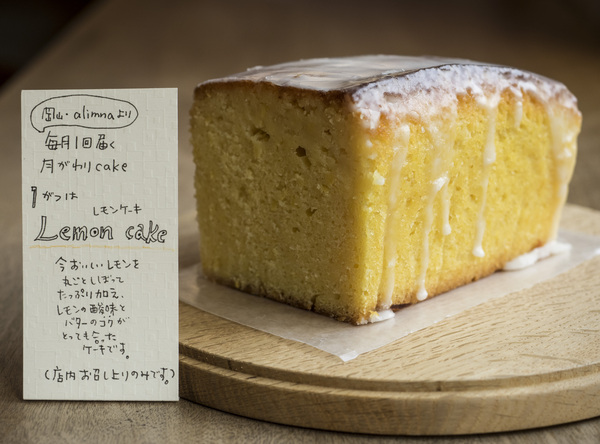 岡山・alimnaより
毎月1回届く
月がわりcake
1がつは
レモンケーキ
Lemon cake
今おいしいレモンを
丸ごとしぼって
たっぷり加え、
レモンの酸味と
バターのコクが
とっても合った
ケーキです。
(店内お召し上りのみです。)